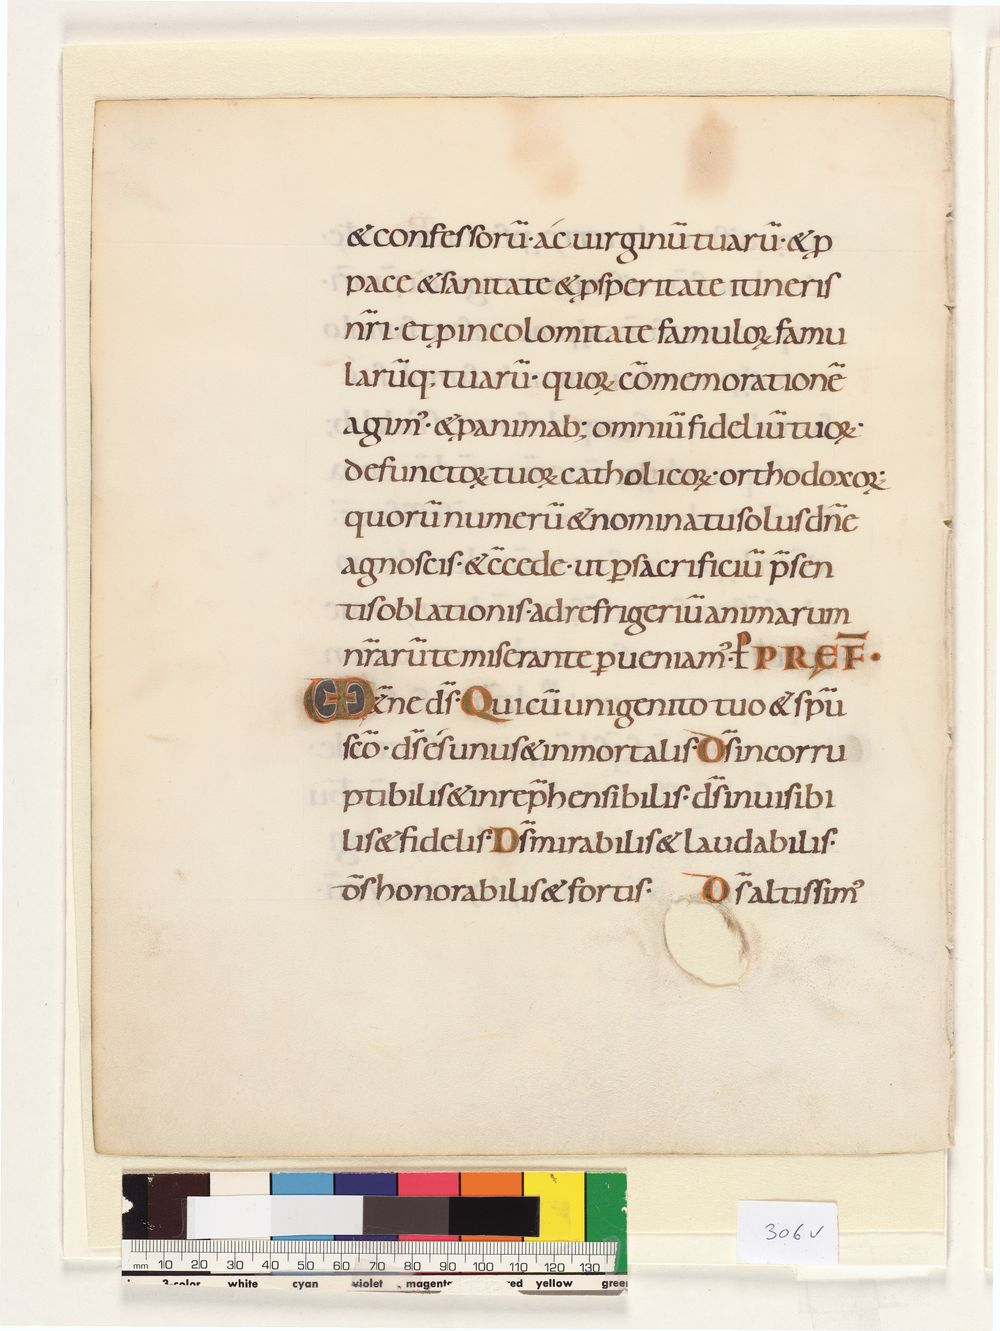 & confessorū· ac uirginū tuarū· & ꝑ
pace & sanitate & ꝓsperitate itineris
nr̄i· et ꝑ incolomitate famuloꝝ famu
larūq; tuarū· quoꝝ cōmemorationē
agim᾽· & ꝑ animab; omniū fideliū tuoꝝ·
defunctoꝝ tuoꝝ catholicoꝝ· orthodoxoꝝ·
quorū numerū & nomina tu solus dn̄e
agnoscis· & c̄cede· ut ꝑ sacrificiū p̄sen
tis oblationis· ad refrigeriū animarum
nr̄arū te miserante ꝑueniam᾽· ꝑ PREF̄·
Æt̄ne ds̄· Qui cū unigenito tuo & spū
sc̄o· ds̄ es unus & inmortalis· Ds̄ incorru
ptibilis & inrep̄hensibilis· ds̄ inuisibi
lis & fidelis· Ds̄ mirabilis & laudabilis·
ds̄ honorabilis & fortis· Ds̄ altissim᾽
306v
mm 10 20 30 40 50 60 70 80 90 100 110 120 130
3-color white cyan violet magenta red yellow green